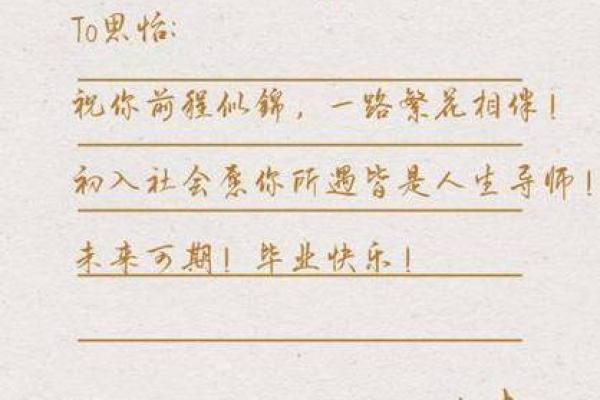 To思怡:
祝你前程似锦，一路繁花相伴！
初入社会愿你所遇皆是人生导师！
未来可期！毕业快乐！